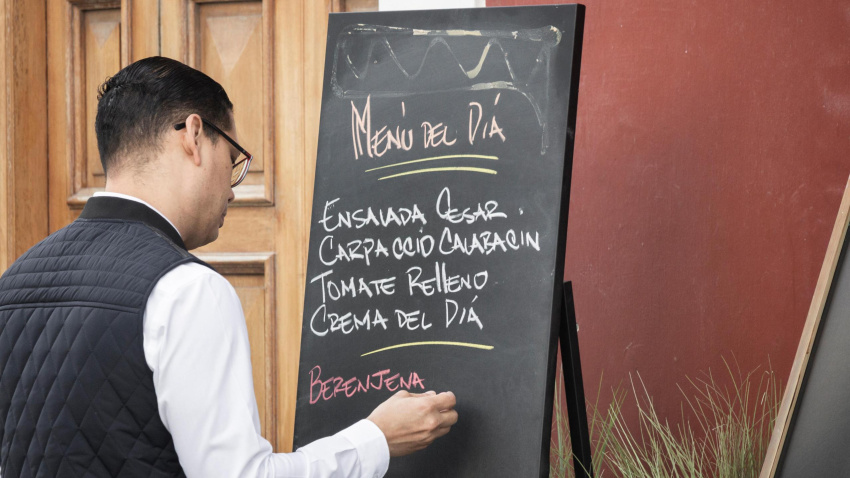 MENÚ DEL DIÁ
ENSALADA CESAR.
CARPACCIO CALABACIN
TOMATE RELLENO
CREMA DEL DIÁ
BERENJENA